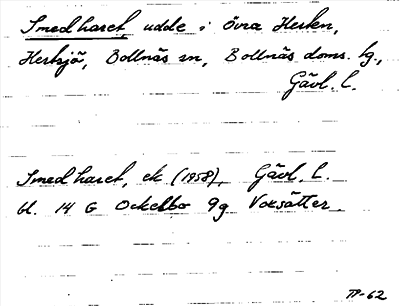 Smedharet, udde i övra Hersen,
Hertsjö, Bollnäs sn, Bollnäs doms. tg.,
Gävl. l.
Smedharet, ek (1958), Gävl. l.
bl. 14 G Ockelbo 9g Voxsätter.
TP-62